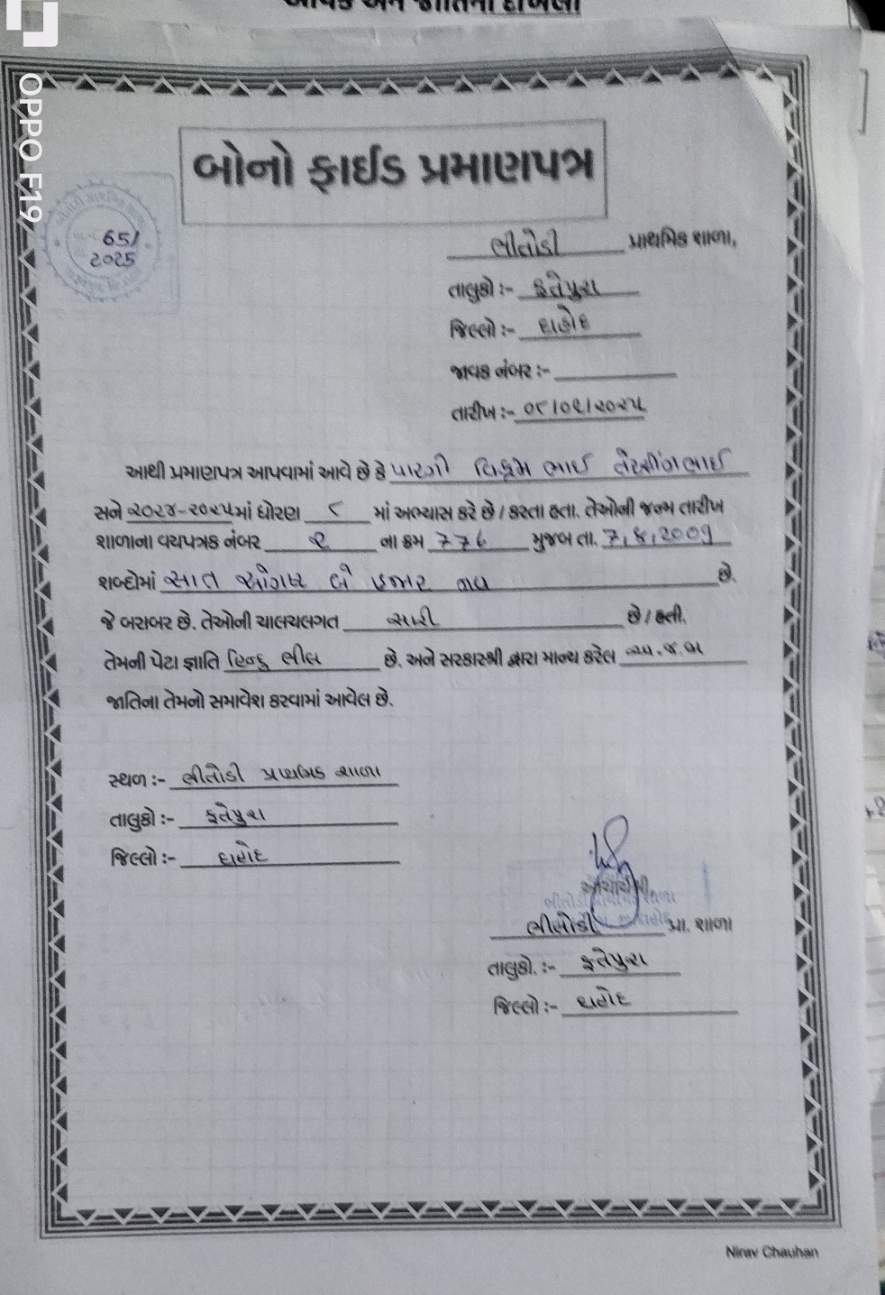 આવક અને જાતિના દાખલા
OPPO F19
બોનો ફાઈડ પ્રમાણપત્ર
651
2025
ભીતોડી પ્રાથમિક શાળા,
તાલુકો :- ફતેપુરા
જિલ્લો :- દાહોદ
જાવક નંબર :-
તારીખ :- ૦૮/૦૯/૨૦૨૫
આથી પ્રમાણપત્ર આપવામાં આવે છે કે પારગી વિક્રમ ભાઈ તેરસીંગભાઈ
સને ૨૦૨૪-૨૦૨૫માં ધોરણ ૮ માં અભ્યાસ કરે છે / કરતા હતા. તેઓની જન્મ તારીખ
શાળાના વયપત્રક નંબર ૨ ના ક્રમ ૭૭૬ મુજબ તા. 7, 8, 2009
શબ્દોમાં સાત ઓગષ્ટ બે હજાર નવ છે.
જે બરાબર છે. તેઓની ચાલચલગત સારી છે / હતી.
તેમની પેટા જ્ઞાતિ હિન્દુ ભીલ છે. અને સરકારશ્રી દ્વારા માન્ય કરેલ અ.જ.જા
જાતિના તેમનો સમાવેશ કરવામાં આવેલ છે.
સ્થળ :- ભીતોડી પ્રાથમિક શાળા
તાલુકો :- ફતેપુરા
જિલ્લો :- દાહોદ
આચાર્યશ્રી,
ભીતોડી પ્રા. શાળા
તાલુકો. :- ફતેપુરા
જિલ્લો :- દાહોદ
Nirav Chauhan